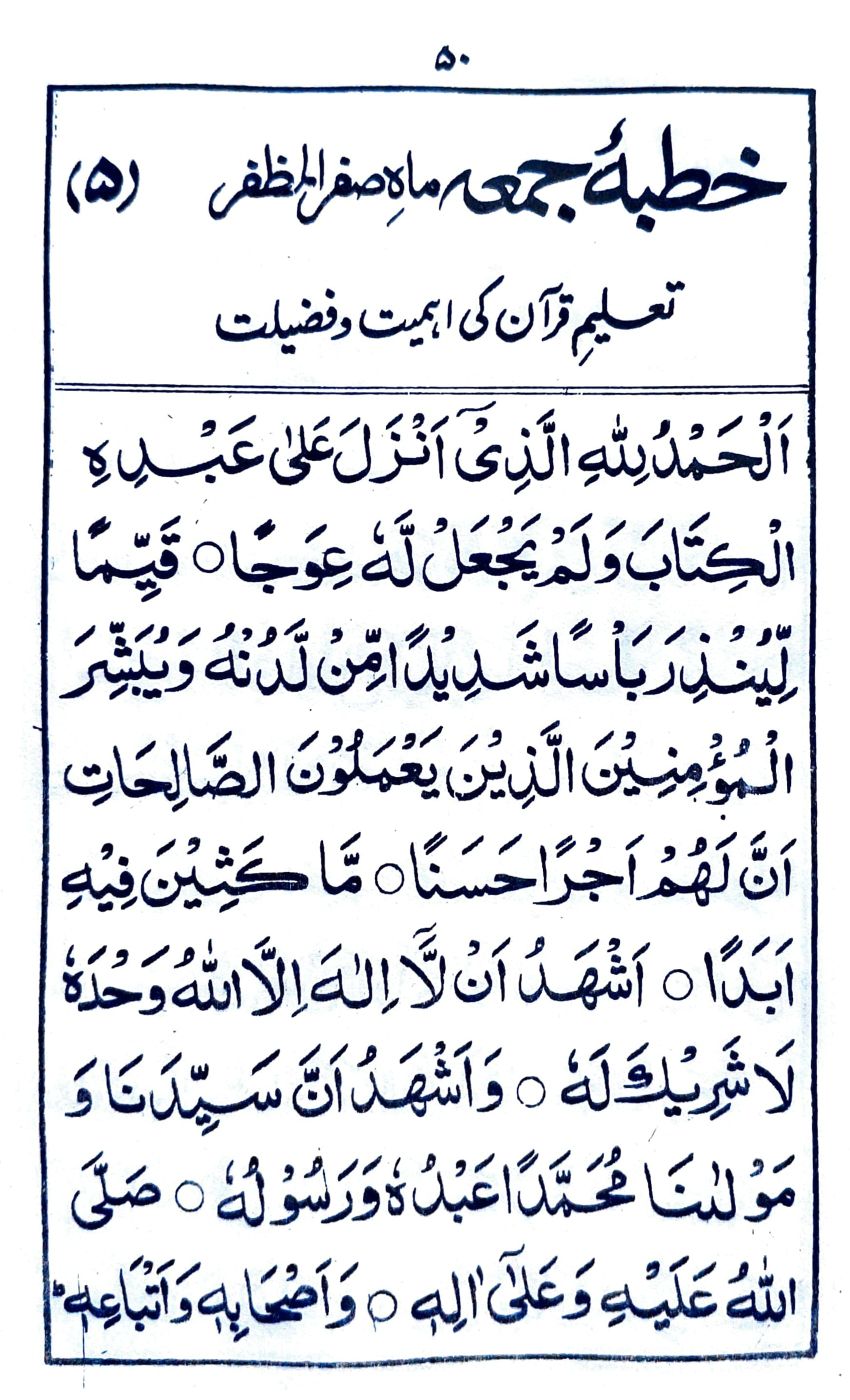 ۵۰
خطبۂ جمعہ ماہِ صفر المظفر (۵)
تعلیمِ قرآن کی اہمیت و فضیلت
اَلْحَمْدُ لِلّٰهِ الَّذِیْٓ اَنْزَلَ عَلٰی عَبْدِهِ
الْكِتَابَ وَلَمْ يَجْعَلْ لَّهٗ عِوَجًا ○ قَيِّمًا
لِّيُنْذِرَ بَاْسًا شَدِيْدًا مِّنْ لَّدُنْهُ وَيُبَشِّرَ
الْمُؤْمِنِيْنَ الَّذِيْنَ يَعْمَلُوْنَ الصَّالِحَاتِ
اَنَّ لَهُمْ اَجْرًا حَسَنًا ○ مَّا كَثِيْنَ فِيْهِ
اَبَدًا ○ اَشْهَدُ اَنْ لَّآ اِلٰهَ اِلَّا اللّٰهُ وَحْدَهٗ
لَا شَرِيْكَ لَهٗ ○ وَاَشْهَدُ اَنَّ سَيِّدَنَا وَ
مَوْلٰنَا مُحَمَّدًا عَبْدُهٗ وَرَسُوْلُهٗ ○ صَلَّى
اللّٰهُ عَلَيْهِ وَعَلٰٓى اٰلِهٖ ○ وَاَصْحَابِهٖ وَاَتْبَاعِهٖ